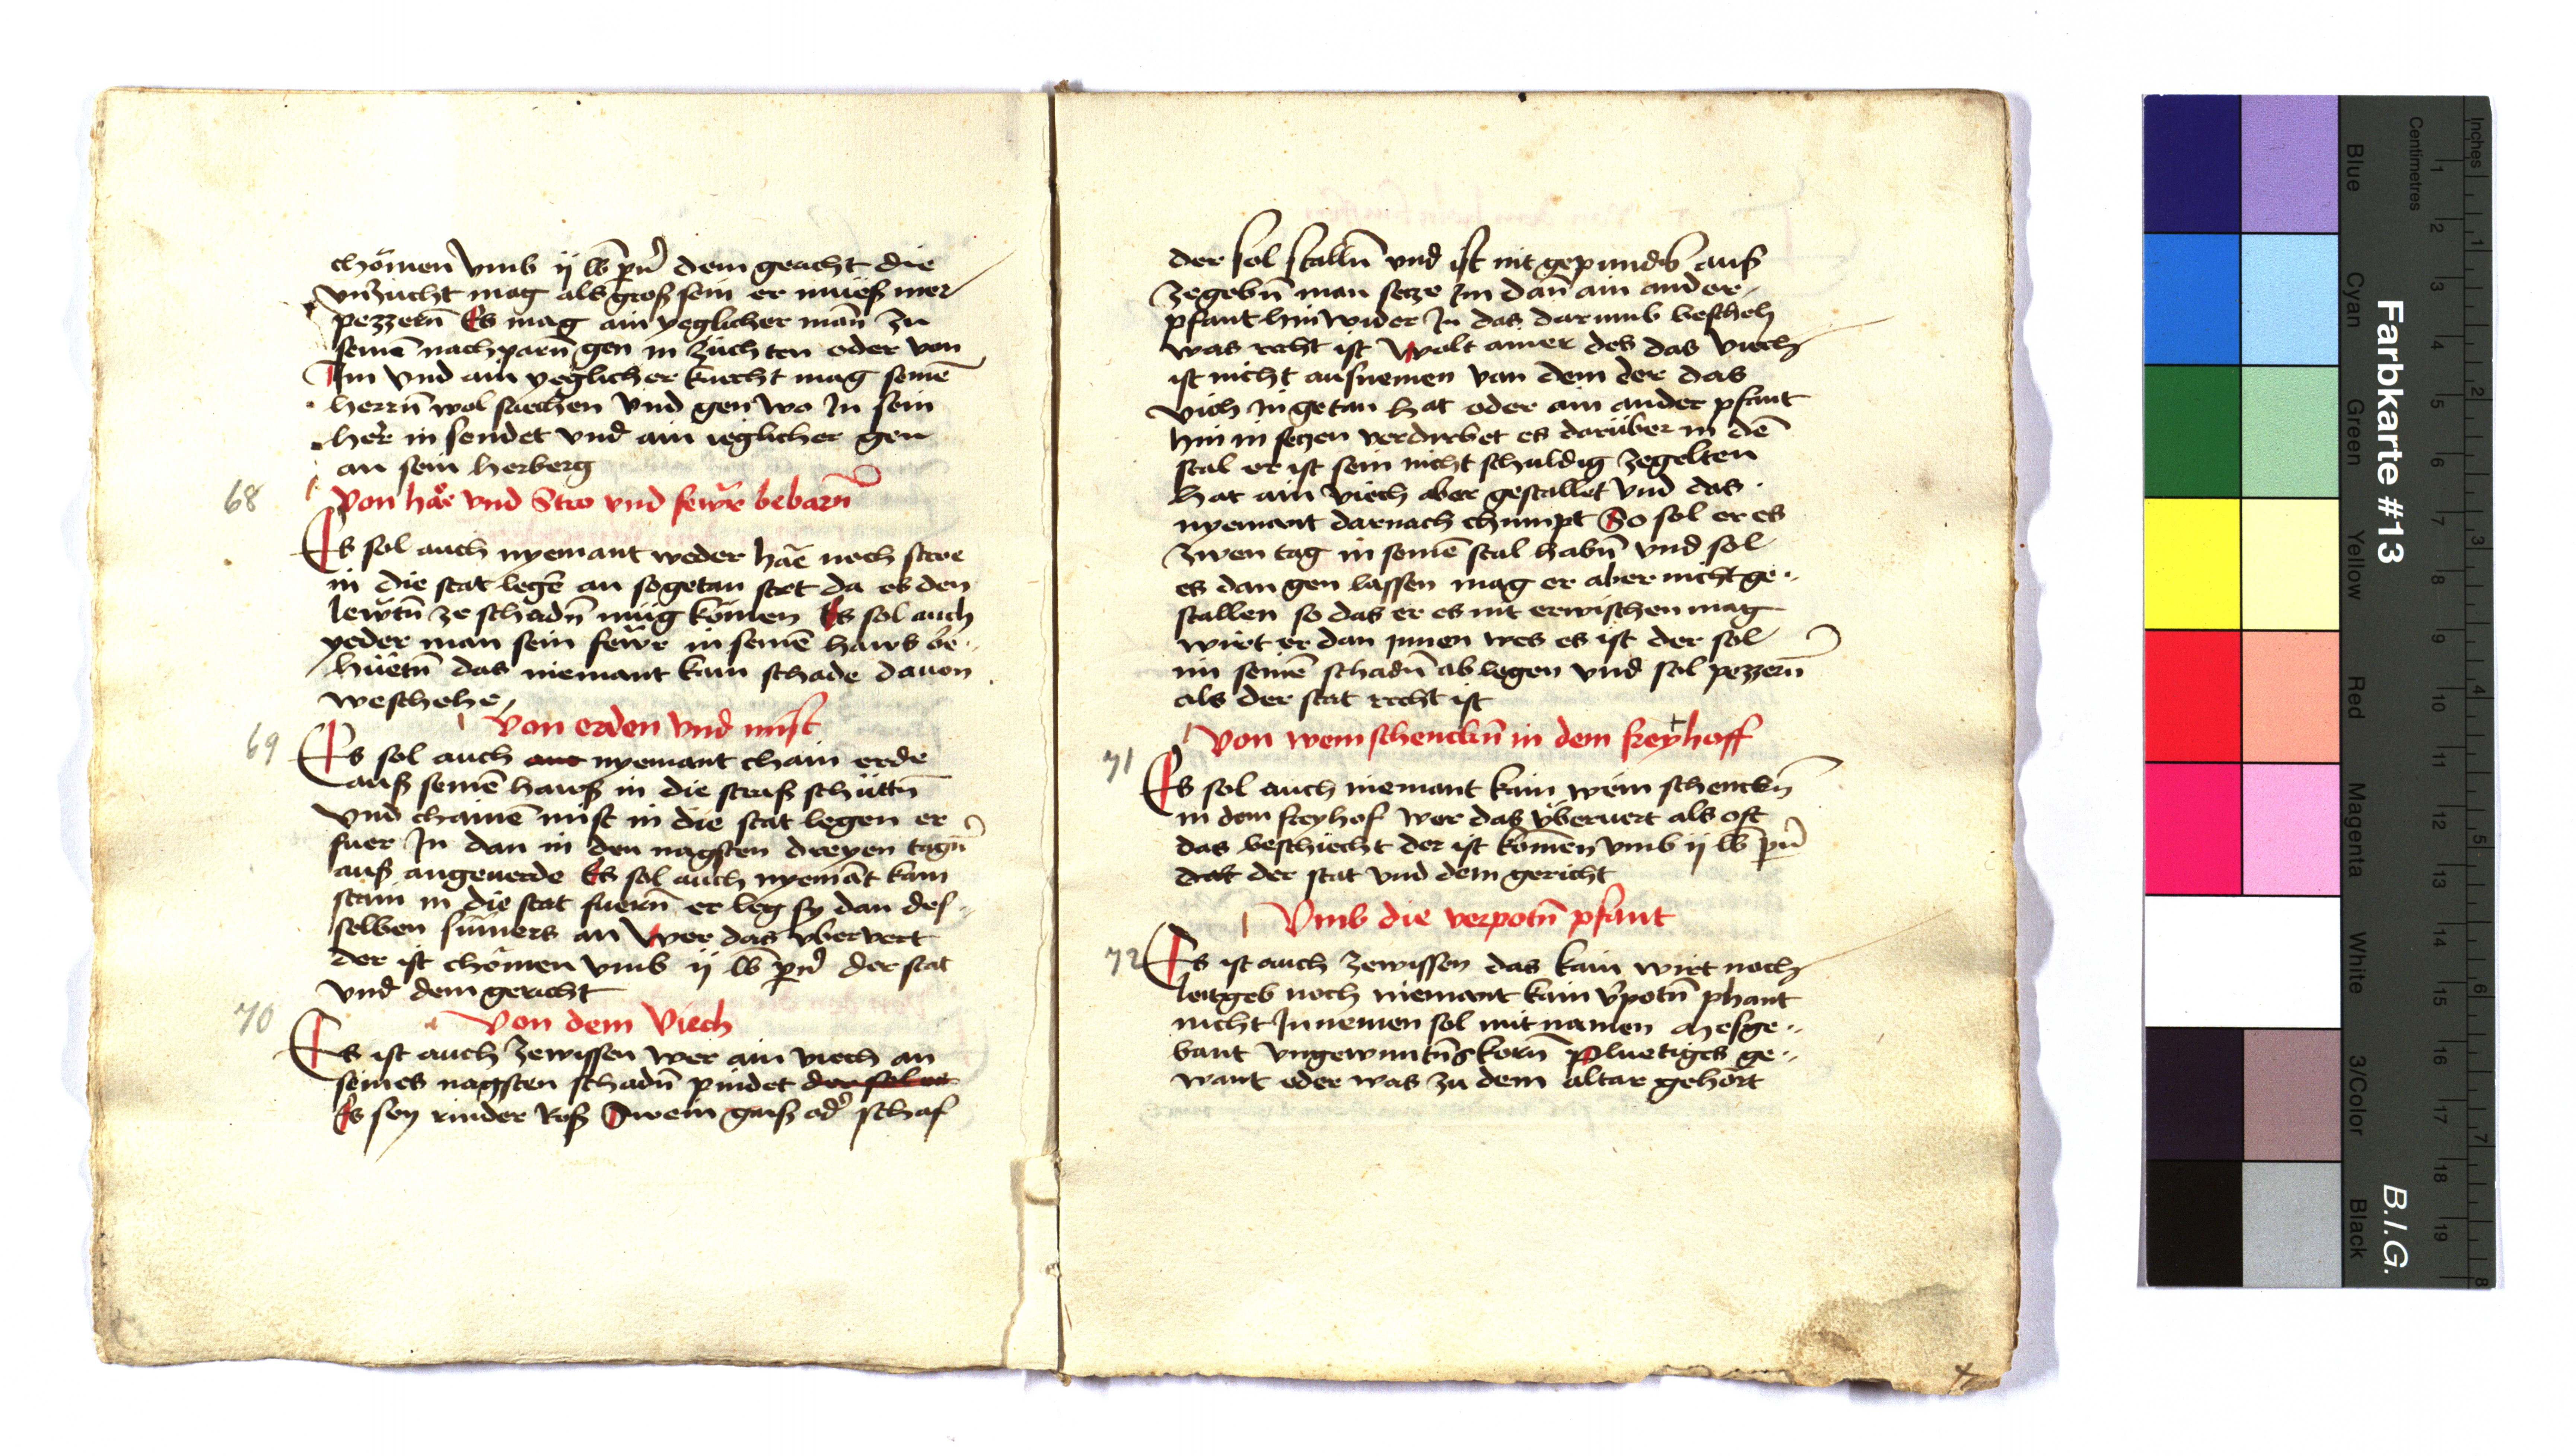 chömen vmb ij lb pn̄ dem geucht die
vnzucht mag als groß sein er mueß mer
pezzern̄ Es mag ain yeglicher man̄ zu
seinē nachparn̄ gen in züchten oder von
Im vnd ain yeglicher knecht mag seinē
herrn̄ wol suechen vnd gen wo In sein
herr in sendet vnd ain ieglicher gen
an sein herberg
68 Von häe vnd Stro vnd fewr bebarn̄
Es sol auch nyemant weder häe noch stroe
in die stat legē an sogetan stet da es den
lewtn̄ ze schadn̄ müg kömen Es sol auch
yeder man sein fewr in seinē haws be-
hüetn̄ das niemant kain schade dauon
weschehe
Von erden vnd mist
69 Es sol auch nyemant chain erde
auß seinē hauß in die straß schüttn̄
vnd chainē mist in die stat legen er
fuer In dan in den nagsten dreyen tagn̄
auß angeuerde Es sol auch nyemāt kain
stain in die stat fuern̄ er leg sy dan des-
selben sum̄ers an Wer das vbervert
der ist chömen vmb ij lb pn̄ der stat
vnd dem gericht
70 Von dem Viech
Es ist auch zewissen wer ain viech an
seines nagsten schadn̄ pindet der sol es
Es sey rinder Roß Swein gaiß od' schaf
der sol stalln̄ vnd ist nit gepundn̄ auß
zegebn̄ man setze Im dan̄ ain ander
pfant hin wider In das darumb bescheh
was recht ist Wolt ainer des das viech
ist nicht aufnemen von dem der das
vich In getan hat oder ain ander pfant
hin in setzen verdirbet es darüber in dē
stal er ist sein nicht schuldig zegelten
hat ain viech aber gestallet vnd das
nyemant darnach chumpt So sol er es
zwen tag in seinē stal habn̄ vnd sol
es dan gen lassen mag er aber nicht ge-
stallen so das er es nit erwischen mag
wirt er dan ynnen wes es ist der sol
im seinē schadn̄ ab legen vnd sol pezzern̄
als der stat recht ist
Von wein schenckn̄ in dem freyhoff
71 Es sol auch niemant kain wein schenckn̄
in dem freyhof wer das vberuert als oft
das beschiecht der ist kömen vmb ij lb pn̄
der stat vnd dem gericht
Vmb die verpotn̄ pfant
72 Es ist auch zewissen das kain wirt noch
leitgeb noch niemant kain v'potn̄ phant
nicht Innemen sol mit namen mesge-
bant vngewuntn̄s korn̄ Pluetiges ge-
want oder was zu dem altar gehört
Inches
Centimetres
Farbkarte #13
B.I.G.
Blue
Cyan
Green
Yellow
Red
Magenta
White
3/Color
Black
1 2 3 4 5 6 7 8 9 10 11 12 13 14 15 16 17 18 19
1 2 3 4 5 6 7 8